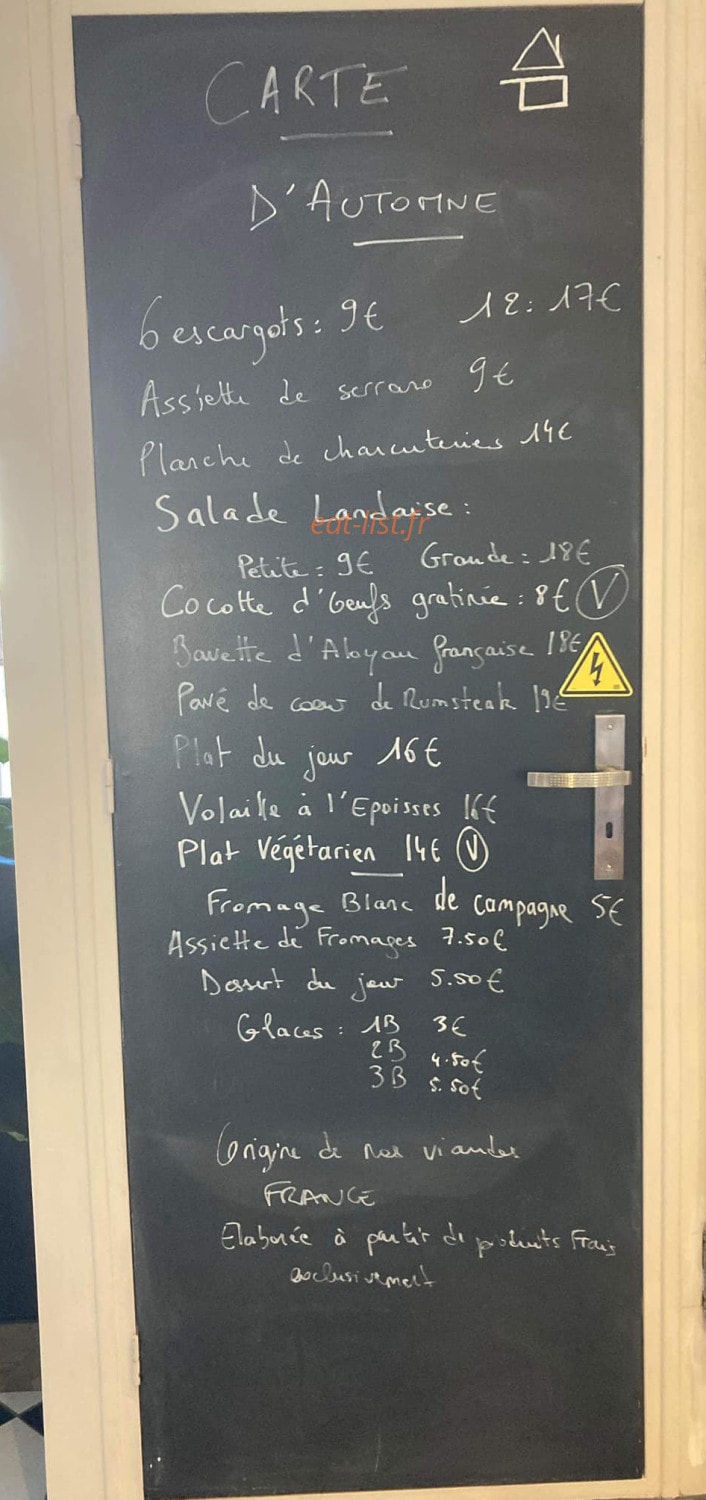 CARTE
D'AUTOMNE
6 escargots : 9€ 12 : 17€
Assiette de serrano 9€
Planche de charcuteries 14€
Salade Landaise :
eat-list.fr
Petite : 9€ Grande : 18€
Cocotte d'Oeufs gratinée : 8€ V
Bavette d'Aloyau française 18€
Pavé de coeur de Rumsteak 19€
Plat du jour 16€
Volaille à l'Epoisses 16€
Plat Végétarien 14€ V
Fromage Blanc de campagne 5€
Assiette de Fromages 7.50€
Dessert du jour 5.50€
Glaces : 1B 3€
2B 4.50€
3B 5.50€
Origine de nos viandes
FRANCE
Elaborée à partir de produits Frais
exclusivement